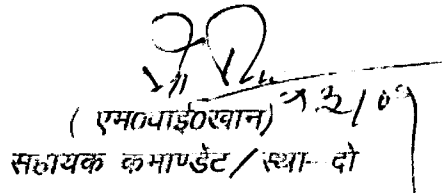 ( एम०वाई०खान)
सहायक कमाण्डेंट/स्था- दो